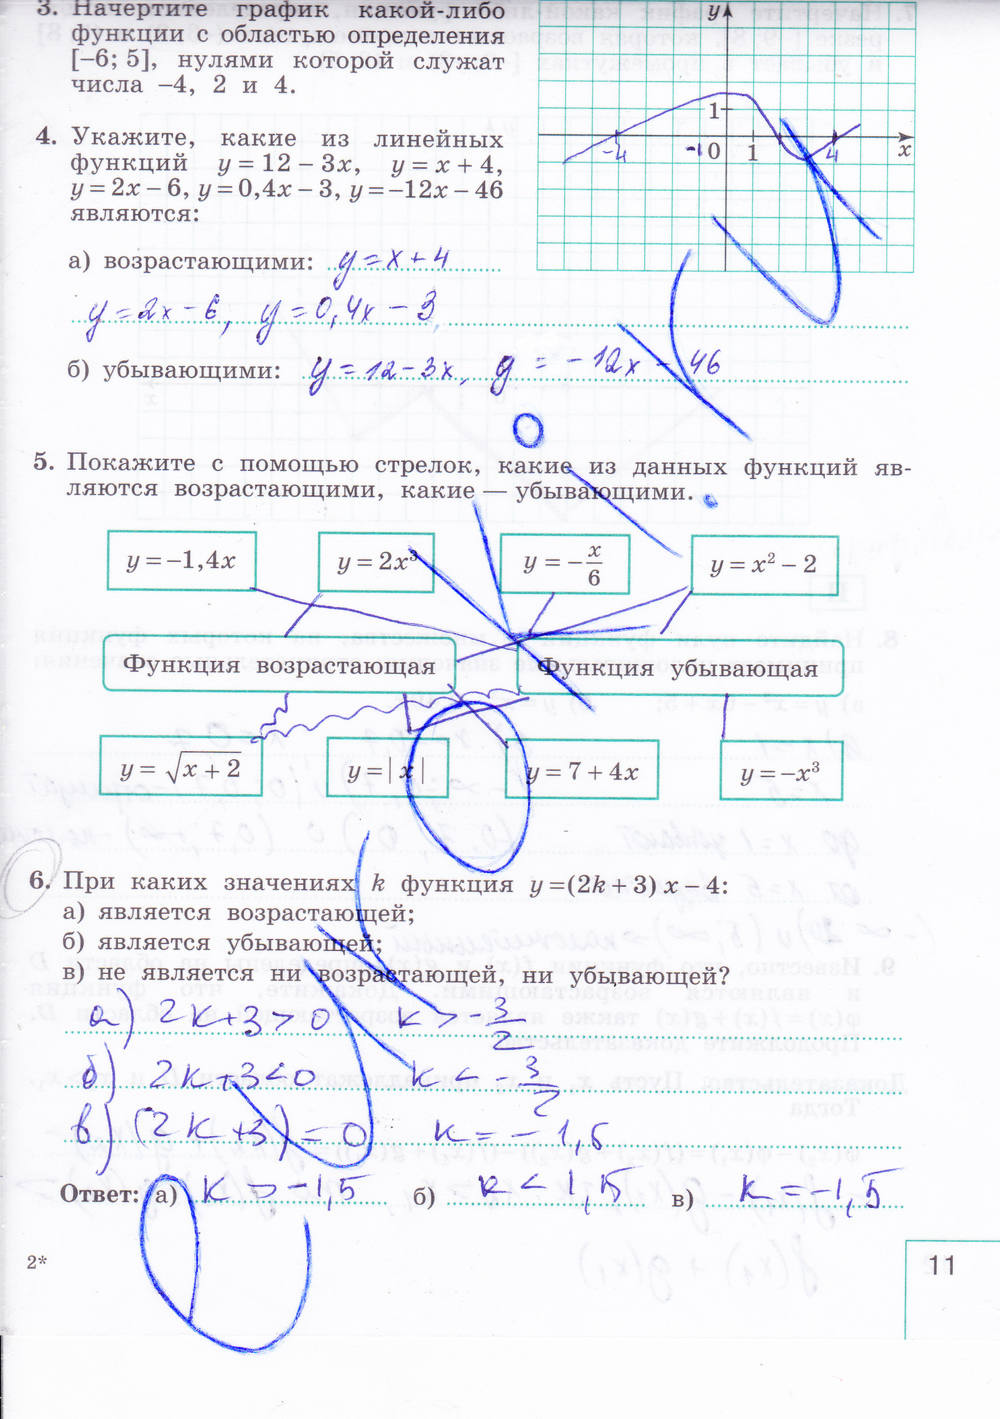 3. Начертите график какой-либо
функции с областью определения
[–6; 5], нулями которой служат
числа –4, 2 и 4.
y
1
-4
-1
0
1
4
x
4. Укажите, какие из линейных
функций y = 12 – 3x, y = x + 4,
y = 2x – 6, y = 0,4x – 3, y = –12x – 46
являются:
а) возрастающими: y = x + 4
y = 2x – 6, y = 0,4x – 3
б) убывающими: y = 12 – 3x, y = – 12x – 46
5. Покажите с помощью стрелок, какие из данных функций яв-
ляются возрастающими, какие — убывающими.
y = –1,4x
y = 2x³
y = –x/6
y = x² – 2
Функция возрастающая
Функция убывающая
y = √(x + 2)
y = | x |
y = 7 + 4x
y = –x³
6. При каких значениях k функция y = (2k + 3) x – 4:
а) является возрастающей;
б) является убывающей;
в) не является ни возрастающей, ни убывающей?
а) 2k+3 > 0 k > – 3/2
б) 2k+3 < 0 k < – 3/2
в) (2k+3) = 0 k = – 1,5
Ответ: а) k > –1,5 б) k < 1,5 в) k = –1,5
2*
11